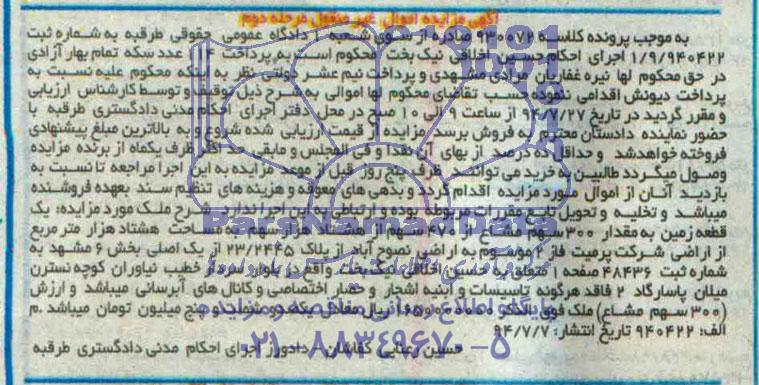 آگهی مزایده اموال غیر منقول مرحله دوم
به موجب پرونده کلاسه ۹۳۰۰۷۲ صادره از سوی شعبه ۱ دادگاه عمومی حقوقی طرقبه به شماره ثبت
۱/۹/۹۴۰۴۲۲ اجرای احکام حسین اخلاقی نیک بخت محکوم است به پرداخت عدد سکه تمام بهار آزادی
در حق محکوم لها نیره غفاریان مرادی مشهدی و پرداخت نیم عشر دولتی نظر به اینکه محکوم علیه نسبت به
پرداخت دیونش اقدامی ننموده حسب تقاضای محکوم لها اموالی به شرح ذیل توقیف و توسط کارشناس ارزیابی
و مقرر گردید در تاریخ ۹۴/۷/۲۷ از ساعت ۹ الی ۱۰ صبح در محل دفتر اجرای احکام مدنی دادگستری طرقبه با
حضور نماینده دادستان محترم به فروش برسد مزایده از قیمت ارزیابی شده شروع و به بالاترین مبلغ پیشنهادی
فروخته خواهد شد و حداقل ده درصد از بهای آن نقدا و فی المجلس و مابقی حداکثر ظرف یکماه از برنده مزایده
وصول میگردد طالبین به خرید می توانند ظرف پنج روز قبل از موعد مزایده به این اجرا مراجعه تا نسبت به
بازدید آنان از اموال مورد مزایده اقدام گردد و بدهی های معوقه و هزینه های تنظیم سند بعهده فروشنده
میباشد و تخلیه و تحویل تابع مقررات مربوطه بوده و ارتباطی به این اجرا ندارد شرح ملک مورد مزایده: یک
قطعه زمین به مقدار ۳۰۰ سهم مشاع از ۴۷۰ سهم از هشتاد هزار سهم به مساحت هشتاد هزار متر مربع
از اراضی شرکت پرمیت فاز ۲ موسوم به اراضی نصوح آباد از پلاک ۲۳/۲۴۴۵ از یک اصلی بخش ۶ مشهد به
شماره ثبت ۴۸۴۳۶ صفحه ۱ متعلق به حسین اخلاقی نیک بخت واقع در بلوار سردار خطیب نیاوران کوچه نسترن
میلان پاسارگاد ۲ فاقد هرگونه تاسیسات و ابنیه اشجار و حصار اختصاصی و کانال های آبرسانی میباشد و ارزش
(۳۰۰ سهم مشاع) ملک فوق الذکر ریال معادل یکصد و شصت و پنج میلیون تومان میباشد .م
الف: ۹۴۰۴۲۲ تاریخ انتشار: ۹۴/۷/۷
حسین رعنایی کفاشان - دادورز اجرای احکام مدنی دادگستری طرقبه
ParsNamadData
پایگاه اطلاع رسانی مناقصه و مزایده
۰۲۱-۸۸۳۴۹۶۷۰-۵